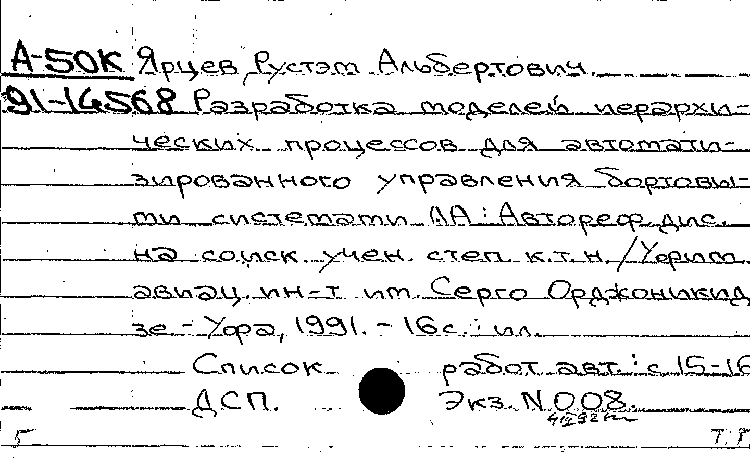 А-50К Ярцев, Рустэм Альбертович.
91-14568 Разработка моделей иерархи-
ческих процессов для автомати-
зированного управления бортовы-
ми системами ЛА: Автореф. дис.
на соиск. учен. степ. к.т.н./Уфим.
авиац. ин-т им. Серго Орджоникид
зе - Уфа, 1991. - 16 с.: ил.
Список работ авт.: с 15-16
ДСП. Экз. N 008.
Б Т. Р